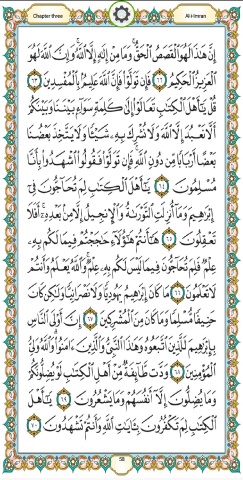 Chapter three
Al-Imran
إِنَّ هَٰذَا لَهُوَ ٱلْقَصَصُ ٱلْحَقُّ ۚ وَمَا مِنْ إِلَٰهٍ إِلَّا ٱللَّهُ ۚ وَإِنَّ ٱللَّهَ لَهُوَ
ٱلْعَزِيزُ ٱلْحَكِيمُ ٦٢ فَإِن تَوَلَّوْا۟ فَإِنَّ ٱللَّهَ عَلِيمٌۢ بِٱلْمُفْسِدِينَ ٦٣
قُلْ يَٰٓأَهْلَ ٱلْكِتَٰبِ تَعَالَوْا۟ إِلَىٰ كَلِمَةٍ سَوَآءٍۭ بَيْنَنَا وَبَيْنَكُمْ
أَلَّا نَعْبُدَ إِلَّا ٱللَّهَ وَلَا نُشْرِكَ بِهِۦ شَيْـًٔا وَلَا يَتَّخِذَ بَعْضُنَا
بَعْضًا أَرْبَابًا مِّن دُونِ ٱللَّهِ ۚ فَإِن تَوَلَّوْا۟ فَقُولُوا۟ ٱشْهَدُوا۟ بِأَنَّا
مُسْلِمُونَ ٦٤ يَٰٓأَهْلَ ٱلْكِتَٰبِ لِمَ تُحَآجُّونَ فِىٓ
إِبْرَٰهِيمَ وَمَآ أُنزِلَتِ ٱلتَّوْرَىٰةُ وَٱلْإِنجِيلُ إِلَّا مِنۢ بَعْدِهِۦٓ ۚ أَفَلَا
تَعْقِلُونَ ٦٥ هَٰٓأَنتُمْ هَٰٓؤُلَآءِ حَٰجَجْتُمْ فِيمَا لَكُم بِهِۦ
عِلْمٌ فَلِمَ تُحَآجُّونَ فِيمَا لَيْسَ لَكُم بِهِۦ عِلْمٌ ۚ وَٱللَّهُ يَعْلَمُ وَأَنتُمْ
لَا تَعْلَمُونَ ٦٦ مَا كَانَ إِبْرَٰهِيمُ يَهُودِيًّا وَلَا نَصْرَانِيًّا وَلَٰكِن كَانَ
حَنِيفًا مُّسْلِمًا وَمَا كَانَ مِنَ ٱلْمُشْرِكِينَ ٦٧ إِنَّ أَوْلَى ٱلنَّاسِ
بِإِبْرَٰهِيمَ لَلَّذِينَ ٱتَّبَعُوهُ وَهَٰذَا ٱلنَّبِىُّ وَٱلَّذِينَ ءَامَنُوا۟ ۗ وَٱللَّهُ وَلِىُّ
ٱلْمُؤْمِنِينَ ٦٨ وَدَّت طَّآئِفَةٌ مِّنْ أَهْلِ ٱلْكِتَٰبِ لَوْ يُضِلُّونَكُمْ
وَمَا يُضِلُّونَ إِلَّآ أَنفُسَهُمْ وَمَا يَشْعُرُونَ ٦٩ يَٰٓأَهْلَ
ٱلْكِتَٰبِ لِمَ تَكْفُرُونَ بِـَٔايَٰتِ ٱللَّهِ وَأَنتُمْ تَشْهَدُونَ ٧٠
58